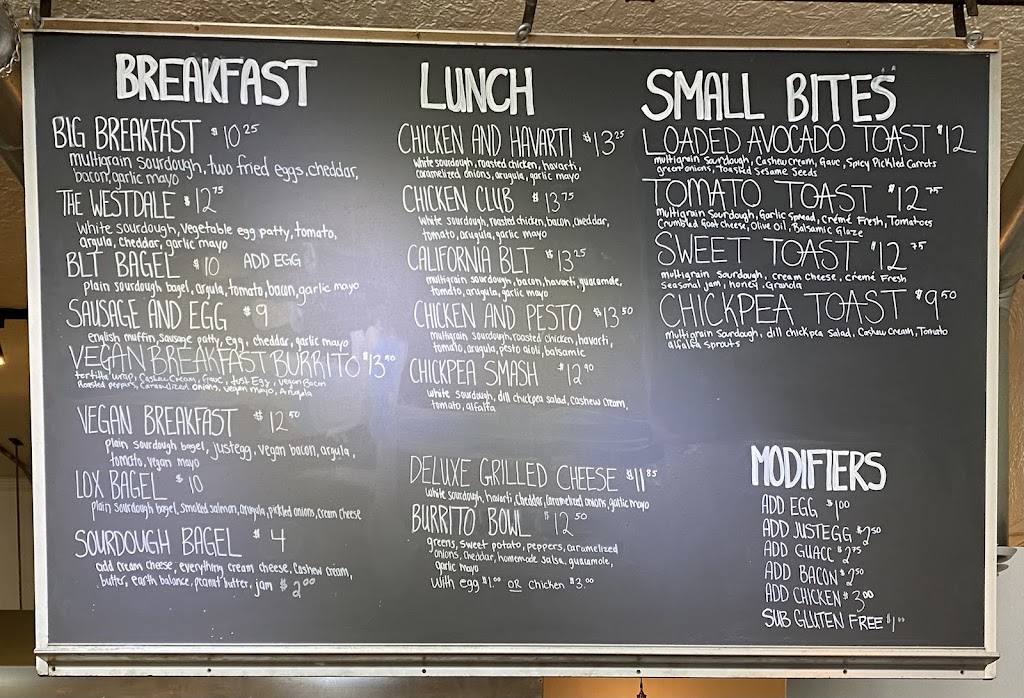 BREAKFAST
BIG BREAKFAST $10.25
multigrain sourdough, two fried eggs, cheddar,
bacon, garlic mayo
THE WESTDALE $12.75
White sourdough, Vegetable egg patty, tomato,
argula, cheddar, garlic mayo
BLT BAGEL $10 ADD EGG
plain sourdough bagel, argula, tomato, bacon, garlic mayo
SAUSAGE AND EGG $9
english muffin, sausage patty, egg, cheddar, garlic mayo
VEGAN BREAKFAST BURRITO $13.50
tortilla wrap, Cashew Cream, Guac, Just Egg, Vegan Bacon
Roasted peppers, Caramelized onions, vegan mayo, Arugula
VEGAN BREAKFAST $12.50
plain sourdough bagel, justegg, vegan bacon, argula,
tomato, vegan mayo
LOX BAGEL $10
plain sourdough bagel, smoked salmon, arugula, pickled onions, cream cheese
SOURDOUGH BAGEL $4
add cream cheese, everything cream cheese, cashew cream,
butter, earth balance, peanut butter, jam $2.00
LUNCH
CHICKEN AND HAVARTI $13.25
white sourdough, roasted chicken, havarti,
caramelized onions, arugula, garlic mayo
CHICKEN CLUB $13.75
White sourdough, roasted chicken, bacon, cheddar,
tomato, arugula, garlic mayo
CALIFORNIA BLT $13.25
multigrain sourdough, bacon, havarti, guacamole,
tomato, arugula, garlic mayo
CHICKEN AND PESTO $13.50
multigrain sourdough, roasted chicken, havarti,
tomato, arugula, pesto aioli, balsamic
CHICKPEA SMASH $12.90
white sourdough, dill chickpea salad, cashew cream,
tomato, alfalfa
DELUXE GRILLED CHEESE $11.85
white sourdough, havarti, cheddar, caramelized onions, garlic mayo
BURRITO BOWL $12.50
greens, sweet potato, peppers, caramelized
onions, cheddar, homemade salsa, guacamole,
garlic mayo
with egg $1.00 OR chicken $3.00
SMALL BITES
LOADED AVOCADO TOAST $12
multigrain Sourdough, Cashew cream, Gauc, Spicy Pickled Carrots
green onions, Toasted Sesame Seeds
TOMATO TOAST $12.75
multigrain Sourdough, Garlic Spread, Crémé Fresh, Tomatoes
Crumbled Goat Cheese, Olive Oil, Balsamic Glaze
SWEET TOAST $12.75
multigrain Sourdough, Cream Cheese, Crémé Fresh
Seasonal Jam, honey, Granola
CHICKPEA TOAST $9.50
multigrain Sourdough, dill chickpea Salad, Cashew Cream, Tomato
alfalfa sprouts
MODIFIERS
ADD EGG $1.00
ADD JUSTEGG $2.50
ADD GUACC $2.75
ADD BACON $2.50
ADD CHICKEN $3.00
SUB GLUTEN FREE $1.00